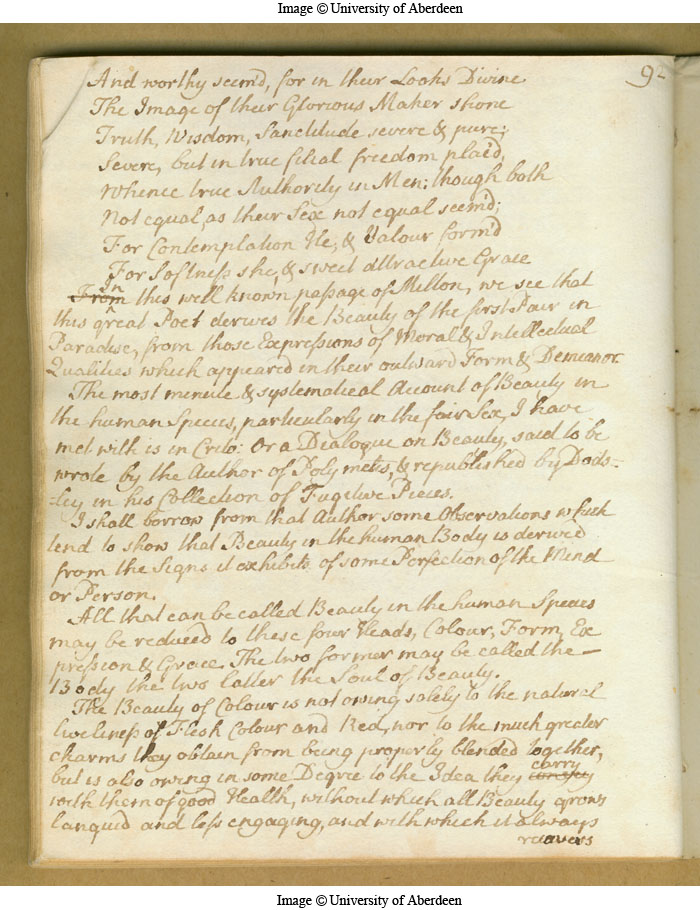 Image © University of Aberdeen
9-
And worthy seem'd, for in their Looks Divine
The Image of their Glorious Maker shone
Truth, Wisdom, Sanctitude severe & pure;
Severe, but in true filial freedom plac'd,
Whence true Authority in Men; though both
Not equal, as their Sex not equal seem'd;
For Contemplation He, & Valour form'd
For Softness she, & sweet attractive Grace
In
From this well known passage of Milton, we see that
this great Poet derives the Beauty of the first Pair in
Paradise, from those Expressions of Moral & Intellectual
Qualities which appeared in their outward Form & Demeanor.
The most minute & systematical Account of Beauty in
the human Species, particularly in the fair Sex, I have
met with is in Crito: Or a Dialogue on Beauty, said to be
wrote by the Author of Polymetis, & republished by Dods-
-ley in his Collection of Fugitive Pieces.
I shall borrow from that Author some Observations which
tend to show that Beauty in the human Body is derived
from the Signs it exhibits of some Perfection of the Mind
or Person.
All that can be called Beauty in the human Species
may be reduced to these four Heads, Colour, Form, Ex
pression & Grace. The two former may be called the —
Body the two latter the Soul of Beauty.
The Beauty of Colour is not owing solely to the natural
liveliness of Flesh Colour and Red, nor to the much greater
charms they obtain from being properly blended together,
carry
but is also owing in some Degree to the Idea they
with them of good Health, without which all Beauty grows
languid and less engaging, and with which it always
recovers
Image © University of Aberdeen